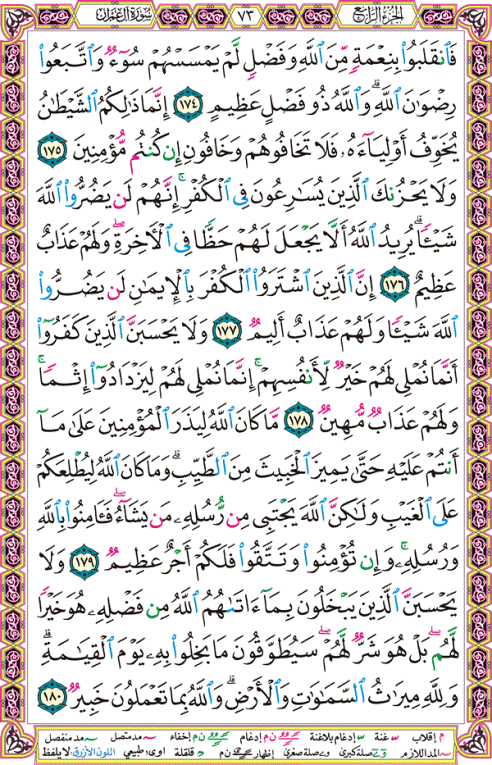 الجزء الرابع ٧٣ سورة آل عمران
فَٱنقَلَبُوا۟ بِنِعْمَةٍ مِّنَ ٱللَّهِ وَفَضْلٍ لَّمْ يَمْسَسْهُمْ سُوٓءٌ وَٱتَّبَعُوا۟
رِضْوَٰنَ ٱللَّهِ ۗ وَٱللَّهُ ذُو فَضْلٍ عَظِيمٍ ١٧٤ إِنَّمَا ذَٰلِكُمُ ٱلشَّيْطَٰنُ
يُخَوِّفُ أَوْلِيَآءَهُۥ فَلَا تَخَافُوهُمْ وَخَافُونِ إِن كُنتُم مُّؤْمِنِينَ ١٧٥
وَلَا يَحْزُنكَ ٱلَّذِينَ يُسَٰرِعُونَ فِى ٱلْكُفْرِ ۚ إِنَّهُمْ لَن يَضُرُّوا۟ ٱللَّهَ
شَيْـًٔا ۗ يُرِيدُ ٱللَّهُ أَلَّا يَجْعَلَ لَهُمْ حَظًّا فِى ٱلْـَٔاخِرَةِ ۖ وَلَهُمْ عَذَابٌ
عَظِيمٌ ١٧٦ إِنَّ ٱلَّذِينَ ٱشْتَرَوُا۟ ٱلْكُفْرَ بِٱلْإِيمَٰنِ لَن يَضُرُّوا۟
ٱللَّهَ شَيْـًٔا وَلَهُمْ عَذَابٌ أَلِيمٌ ١٧٧ وَلَا يَحْسَبَنَّ ٱلَّذِينَ كَفَرُوٓا۟
أَنَّمَا نُمْلِى لَهُمْ خَيْرٌ لِّأَنفُسِهِمْ ۚ إِنَّمَا نُمْلِى لَهُمْ لِيَزْدَادُوٓا۟ إِثْمًا ۚ
وَلَهُمْ عَذَابٌ مُّهِينٌ ١٧٨ مَّا كَانَ ٱللَّهُ لِيَذَرَ ٱلْمُؤْمِنِينَ عَلَىٰ مَآ
أَنتُمْ عَلَيْهِ حَتَّىٰ يَمِيزَ ٱلْخَبِيثَ مِنَ ٱلطَّيِّبِ ۗ وَمَا كَانَ ٱللَّهُ لِيُطْلِعَكُمْ
عَلَى ٱلْغَيْبِ وَلَٰكِنَّ ٱللَّهَ يَجْتَبِى مِن رُّسُلِهِۦ مَن يَشَآءُ ۖ فَـَٔامِنُوا۟ بِٱللَّهِ
وَرُسُلِهِۦ ۚ وَإِن تُؤْمِنُوا۟ وَتَتَّقُوا۟ فَلَكُمْ أَجْرٌ عَظِيمٌ ١٧٩ وَلَا
يَحْسَبَنَّ ٱلَّذِينَ يَبْخَلُونَ بِمَآ ءَاتَىٰهُمُ ٱللَّهُ مِن فَضْلِهِۦ هُوَ خَيْرًا
لَّهُم ۖ بَلْ هُوَ شَرٌّ لَّهُمْ ۖ سَيُطَوَّقُونَ مَا بَخِلُوا۟ بِهِۦ يَوْمَ ٱلْقِيَٰمَةِ ۗ
وَلِلَّهِ مِيرَٰثُ ٱلسَّمَٰوَٰتِ وَٱلْأَرْضِ ۗ وَٱللَّهُ بِمَا تَعْمَلُونَ خَبِيرٌ ١٨٠
م إقلاب غنة إدغام بلاغنة ن م إدغام ن م إخفاء مد متصل مد منفصل
المد اللازم صلة كبرى وصلة صغرى إظهار ن م قلقلة اوى: طبيعي اللون الأزرق: لا يلفظ